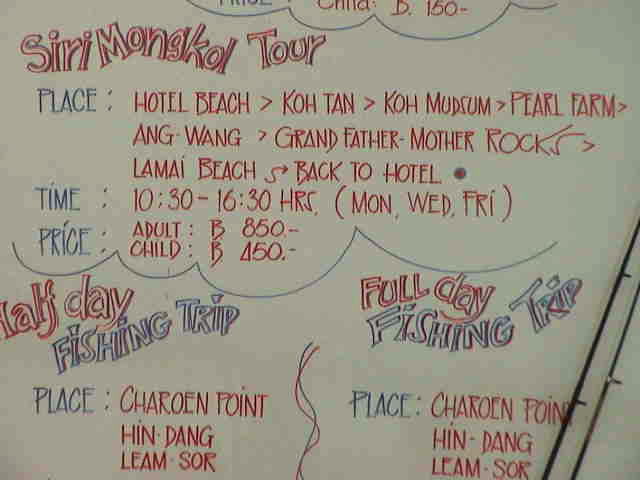 PRICE : Child : B. 150-
Siri Mongkol Tour
PLACE : HOTEL BEACH > KOH TAN > KOH MUDSUM > PEARL FARM >
ANG-WANG > GRAND FATHER-MOTHER ROCKS >
LAMAI BEACH → BACK TO HOTEL
TIME : 10:30 - 16:30 HRS. (MON, WED, FRI)
PRICE : ADULT : B 850.-
CHILD : B 450.-
Half day FISHING TRIP
FULL day FISHING TRIP
PLACE : CHAROEN POINT
HIN-DANG
LEAM-SOR
PLACE : CHAROEN POINT
HIN-DANG
LEAM-SOR